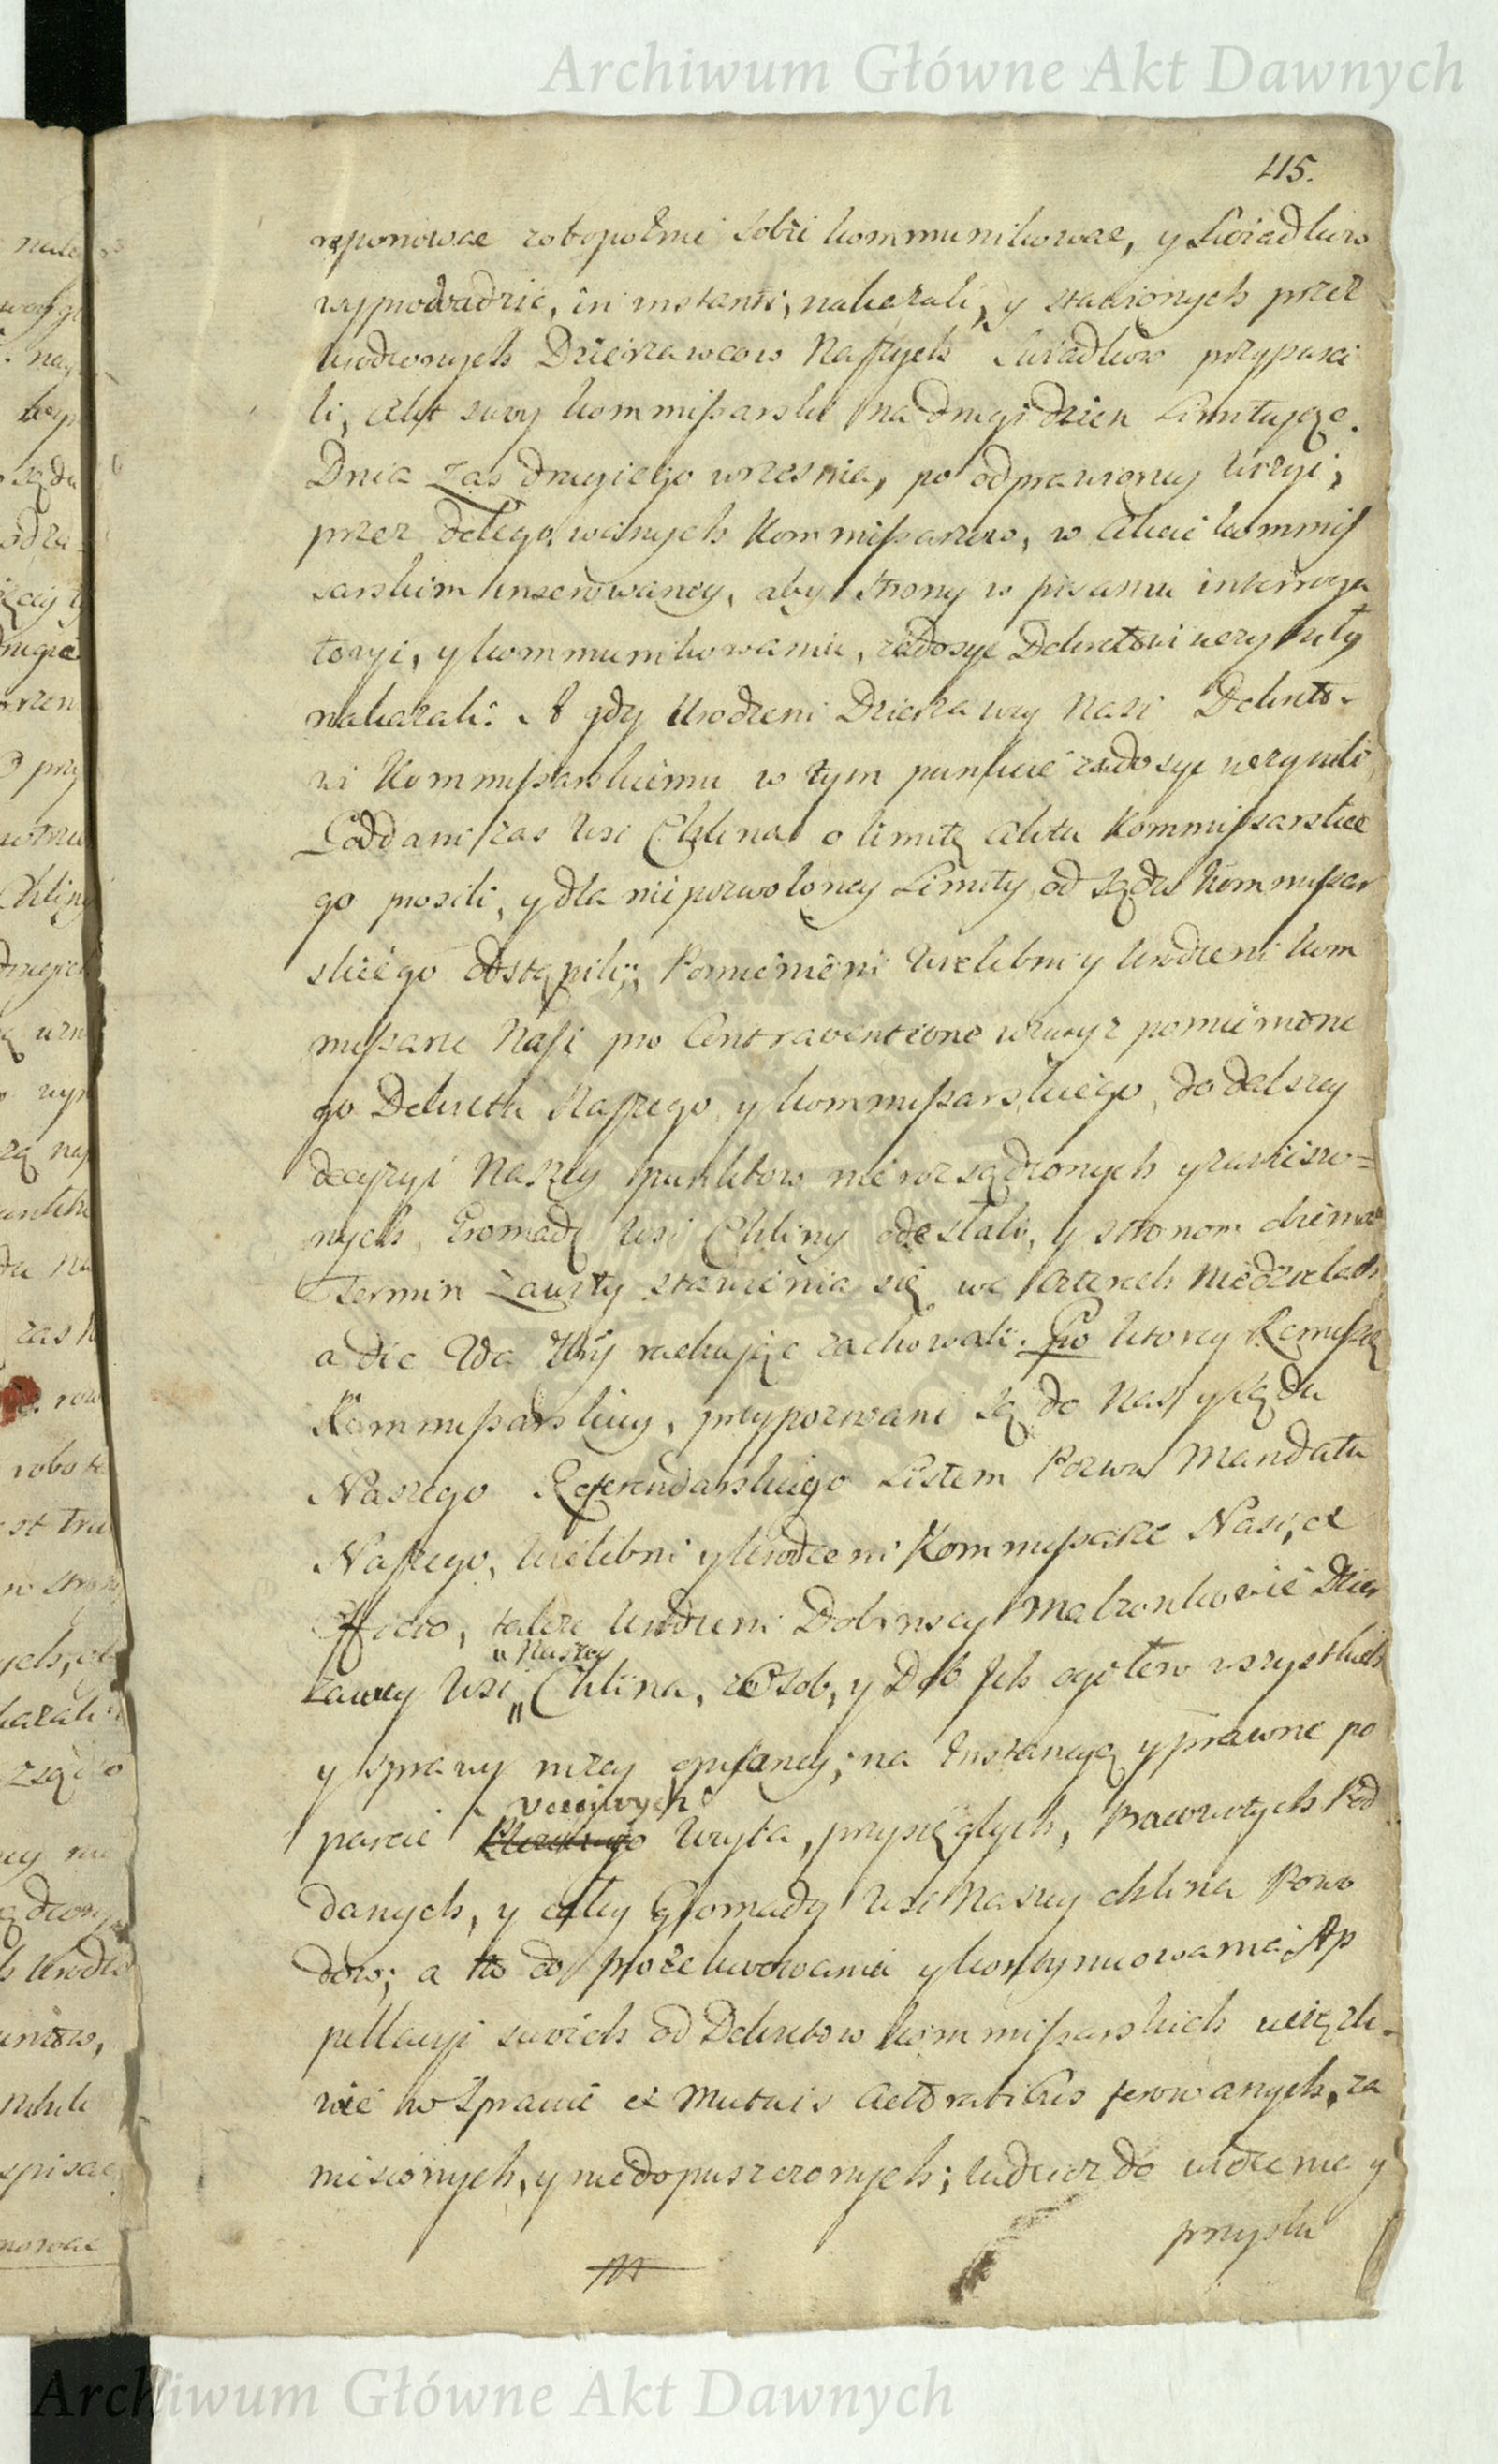 Archiwum Główne Akt Dawnych
415.
reponowac zobopolnie sobie kommunikowac, y Swiadkow
wyprowadzic, in instanti, nakazali, y stawionych przez
urodzonych Dzierzawcow Naszych Swiadkow przypusci
li, Akt swoy kommissarski na drugi dzien Limitując.
Dnia zas drugiego wrzesnia, po odprawioney wizyi,
przez delegowanych Kommissarzow, w Akcie kommis
sarskim inserowaney, aby Strony w pisaniu interroga
toryi, y kommunikowaniu, zadosyc Dekretowi uczyniły
nakazali: A gdy Urodzeni Dzierzawcy Nasi Dekreto-
wi Kommissarskiemu w tym punkcie zadosyc uczynili,
Poddani zas Wsi Chlina o limitę Aktu Kommissarskie
go prosili, y dla niepozwoloney Limity, od Sądu Kommissar
skiego odstąpili; Pomienieni Wielebni y Urodzeni Kom
missarze Nasi pro Contraventione wzwyz pomienione
go Dekretu Naszego y kommissarskiego, do dalszey
decyzyi Naszey punktow nierozsądzonych y zawieszo=
nych, Gromadę Wsi Chliny odesłali, y stronom
Termin zawity stawienia się we czterech Niedzielach
a die rachując zachowali. Po ktorey Remissie
Kommissarskiey, przypozwani są do Nas y Sądu
Naszego Referendarskiego Listem Pozwu Mandatu
Naszego, Wielebni y Urodzeni Kommissarze Nasi, ex
Officio, takze Urodzeni Dobinscy Małzonkowie Dzier
zawcy Wsi „Naszey„ Chlina, z Osob, y Dobr Ich ogołem wszystkich
y sprawy nizey opisaney; na Instancyą y prawne po
parcie uczciwych Woyta, przysięglych, Pracowitych Pod
danych, y całey Gromady Wsi Naszey Chlina Powo
dow; a to do prozekwowania y kontynuowania Ap
pellacyi swoich od Dekretow kommissarskich uciązli-
wie w Sprawie ex Mutuis Actoratibus ferowanych, za
niesionych, y niedopuszczonych; tudziez do widzenia y
przyslu
Archiwum Główne Akt Dawnych